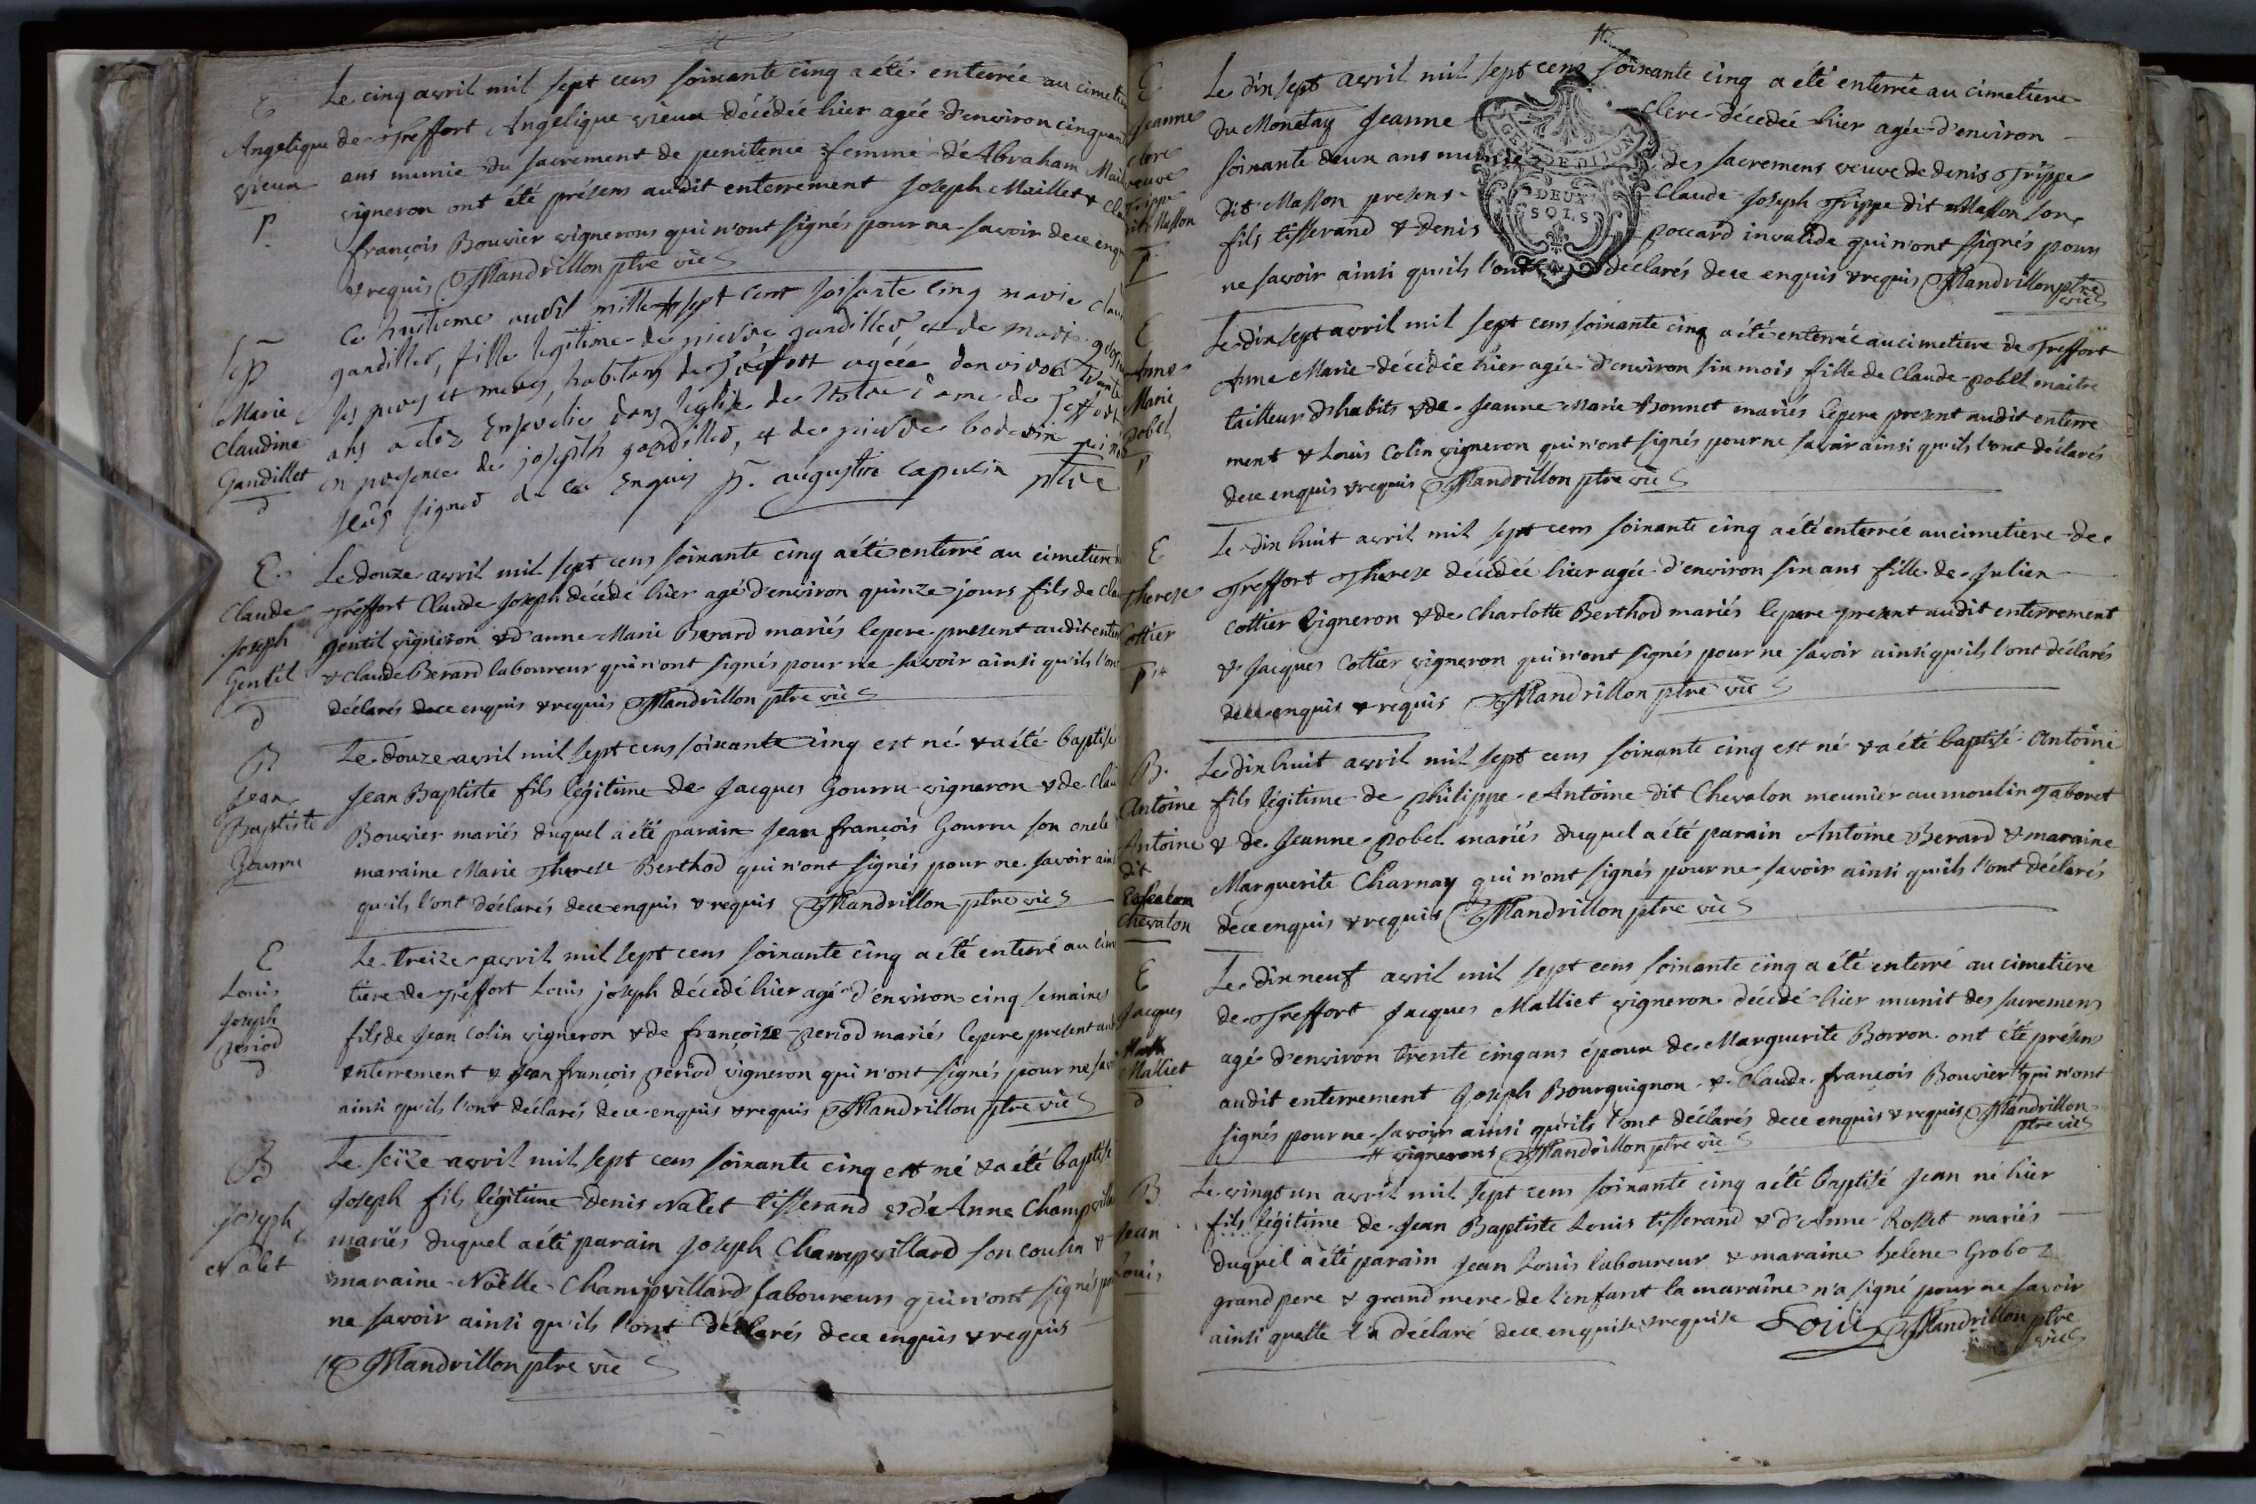 E
Angelique
vieux
p
Le cinq avril mil sept cens soixante cinq a étés enterrée au cimetie
de Treffort Angelique vieux décédée hier agée d'environ cinquan
ans munie du sacrement de penitence femme d'Abraham Mail
vigneron ont été présens audit enterrement Joseph Maillet & Cla
françois Bouvier vignerons qui n'ont signés pour ne savoir dece enq
& requis Mandrillon ptre vic
Marie
Claudine
Gandillet
d
Ce huitieme avril mille sept cent soissante cinq marie clau
gandillet, fille legitime de pierre gandillet et de marie
ses peres et meres, habitans de Treffort agéee denviron trante
ans a etez ensevelie dans leglise de Notre dame de Treffort
en presence de joseph gandillet, et de pierre bodevin qui n
signet de ce enquis p. augustin capucin ptre
E
Claude
Joseph
Gentil
d
Le douze avril mil sept cens soixante cinq a été enterré au cimetiere
Treffort Claude Joseph décédé hier agé d'environ quinze jours fils de Cla
gentil vigneron & d'anne Marie Berard mariés le pere present audit enter
& claude Berard laboureur qui n'ont signés pour ne savoir ainsi qu'ils l'on
déclarés dece enquis & requis Mandrillon ptre vic
B.
Jean
Baptiste
Gourru
Le douze avril mil sept cens soixante cinq est né & a été baptisé
Jean Baptiste fils légitime de Jacques Gourru vigneron & de Clau
Bouvier mariés duquel a été parain Jean françois Gourru son oncle
maraine Marie Therese Berthod qui n'ont signés pour ne savoir ain
qu'ils l'ont déclarés dece enquis & requis Mandrillon ptre vic
E
Louis
Joseph
Period
d
Le treize avril mil sept cens soixante cinq a été enterré au cim
tiere de Treffort Louis joseph décédé hier agé d'environ cinq semaines
fils de Jean Colin vigneron & de françoise Period mariés le pere present aud
enterrement & Jean françois Period vigneron qui n'ont signés pour ne savo
ainsi qu'ils l'ont déclarés dece enquis & requis Mandrillon ptre vic
B
Joseph
Nalet
Le seize avril mil sept cens soixante cinq est né & a été baptisé
Joseph fils légitime Denis Nalet tisserand & d'Anne Champvilla
mariés duquel a été parain Joseph Champvillard son cousin &
maraine Noëlle Champvillard laboureurs qui n'ont signés po
ne savoir ainsi qu'ils l'ont déclarés dece enquis & requis
Mandrillon ptre vic
GEN. DE DIJON
DEUX
SOLS
E
Jeanne
clerc
veuve
Trippe
dit Masson
p
Le dix sept avril mil sept cens soixante cinq a été enterrée au cimetiere
du Monetay Jeanne Clerc décédée hier agée d'environ
soixante deux ans munie des sacremens veuve de denis Trippe
dit Masson presens Claude Joseph Trippe dit Masson son
fils tisserand & Denis poccard invalide qui n'ont signés pour
ne savoir ainsi qu'ils l'ont déclarés dece enquis & requis Mandrillon ptre
vic
E
Anne
Marie
Pobel
p
Le dix sept avril mil sept cens soixante cinq a été enterrée au cimetiere de Treffort
Anne Marie décédée hier agée d'environ six mois fille de Claude Pobel maitre
tailleur d'habits & de Jeanne Marie Bonnet mariés le pere present audit enterre
ment & Louis Colin vigneron qui n'ont signés pour ne savoir ainsi qu'ils l'ont déclarés
dece enquis & requis Mandrillon ptre vic
E
Therese
Cottier
p
Le dix huit avril mil sept cens soixante cinq a été enterrée au cimetiere de
Treffort Therese décédée hier agée d'environ six ans fille de Julien
Cottier vigneron & de Charlotte Berthod mariés le pere present audit enterrement
& Jacques Cottier vigneron qui n'ont signés pour ne savoir ainsi qu'ils l'ont déclarés
dece enquis & requis Mandrillon ptre vic
B.
Antoine
Antoine
dit
Chevalon
Le dix huit avril mil sept cens soixante cinq est né & a été baptisé Antoine
fils légitime de philippe Antoine dit Chevalon meunier au moulin Taboret
& de Jeanne Pobel mariés duquel a été parain Antoine Berard & maraine
Marguerite Charnay qui n'ont signés pour ne savoir ainsi qu'ils l'ont déclarés
dece enquis & requis Mandrillon ptre vic
E
Jacques
Malliet
d
Le dix neuf avril mil sept cens soixante cinq a été enterré au cimetiere
de Treffort Jacques Malliet vigneron décédé hier munit des sacremens
agé d'environ trente cinq ans époux de Marguerite Borron ont été présens
audit enterrement Joseph Bourguignon & Claude françois Bouvier # qui n'ont
signés pour ne savoir ainsi qu'ils l'ont déclarés dece enquis & requis Mandrillon
ptre vic
# vignerons Mandrillon ptre vic
B
Jean
Louis
Le vingt un avril mil sept cens soixante cinq a été baptisé Jean né hier
fils légitime de Jean Baptiste Louis tisserand & d'Anne Rosset mariés
duquel a été parain Jean Louis laboureur & maraine helene Groboz
grand pere & grand mere de l'enfant la maraine n'a signé pour ne savoir
ainsi quelle l'a déclaré dece enquise & requise Louis Mandrillon ptre
vic